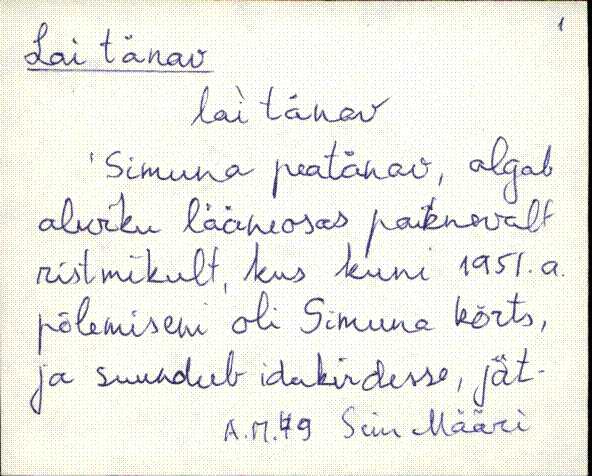 1
Lai tänav
lai tänav
Simuna peatänav, algab
aleviku lääneosas paiknevalt
ristmikult, kus kuni 1951. a.
põlemiseni oli Simuna kõrts,
ja suundub idakirdesse, jät-
A.M. 79 Siiri Määri